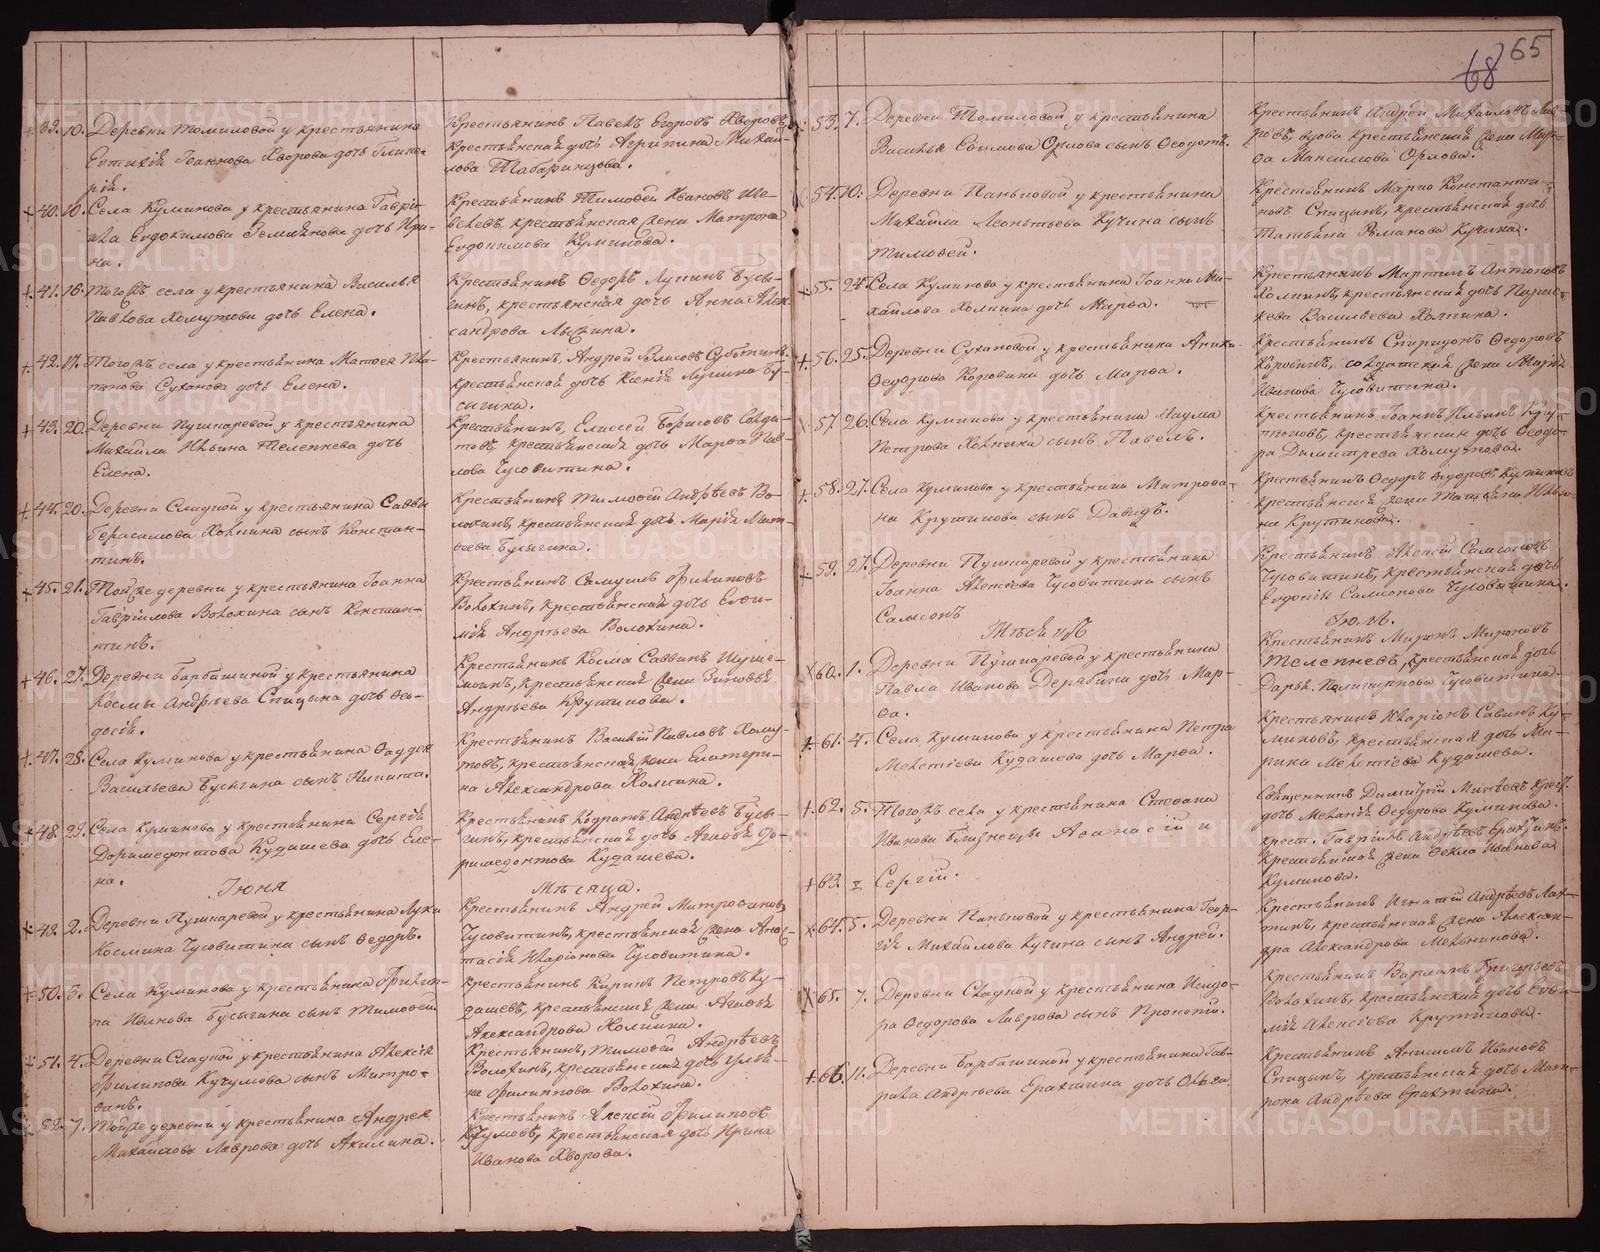 65
68
39. 10. Деревни Томиловой у крестьянина
Евтихія Іоаннова Хворова дочь Глике-
рія.
Крестьянинъ Павелъ Егоровъ Хворовъ,
крестьянская дочь Агрипина Михай-
лова Табаринцова.
40. 10. Села Куминова у крестьянина Гаврі-
ила Евдокимова Земл дочь Ири-
на.
Крестьянинъ Тимоѳей Ивановъ Ше-
велевъ, крестьянская жена Матрона
Евдокимова Куминова.
41. 16. Тогожъ села у крестьянина Василья
Павлова Хомутова дочь Елена.
Крестьянинъ Ѳедоръ Лупинъ Бусы-
гинъ, крестьянская дочь Анна Алек-
сандрова
42. 17. Тогожъ села у крестьянина Матѳея
Суханова дочь Елена.
Крестьянинъ, Андрей Субботинъ
крестьянская дочь Ксенія Лупина Бу-
сыгина.
43. 20. Деревни Пушкаревой у крестьянина
Михаила Ильина Телепнева дочь
Елена.
Крестьянинъ, Елисей Борисовъ Солда-
товъ, крестьянская дочь Марѳа Пав-
лова Чусовитина.
44. 20. Деревни Сладкой у крестьянина Саввы
Герасимова Холкина сынъ Констан-
тинъ.
Крестьянинъ Тимоѳей Андреевъ Во-
лохинъ, крестьянская дочь Марія Мат-
ѳеева Бусыгина.
45. 21. Той же деревни у крестьянина Іоанна
Гавріилова Волохина сынъ Констан-
тинъ.
Крестьянинъ Самуилъ Филиповъ
Волохинъ, крестьянская дочь Евѳи-
мія Андреева Волохина.
46. 27. Деревни Барбашиной у крестьянина
Космы Андреева Спицына дочь Ѳео-
досія.
Крестьянинъ Косма Саввинъ
крестьянская жена Зиновья
Андреева Крутикова.
47. 28. Села Куминова у крестьянина Ѳаддея
Васильева Бусыгина сынъ Никита.
Крестьянинъ Василій Павловъ Хому-
товъ, крестьянская жена Екатери-
на Александрова Холкина.
48. 29. Села Куминова у крестьянина Сергія
Доримедонтова Кудашева дочь Еле-
на.
Крестьянинъ Кодратъ Андреевъ Бусы-
гинъ, крестьянская дочь Агаѳья До-
римедонтова Кудашева.
Іюня Мѣсяца.
49. 2. Деревни Пушкаревой у крестьянина Луки
Космина Чусовитина сынъ Ѳедоръ.
Крестьянинъ Андрей Митрофановъ
Чусовитинъ, крестьянская жена Анас-
тасія Иларіонова Чусовитина.
50. 3. Села Куминова у крестьянина Филип-
па Иванова Бусыгина сынъ Тимоѳей.
Крестьянинъ Киринъ Петровъ Ку-
дашевъ, крестьянская жена Агаѳья
Александрова Холкина.
51. 4. Деревни Сладкой у крестьянина Алексія
Филипова Кучумова сынъ Митро-
ѳанъ.
Крестьянинъ, Тимоѳей Андреевъ
Волохинъ, крестьянская дочь Улья-
на Филиппова Волохина.
52. 7. Той же деревни у крестьянина Андрея
Михайлова Лаврова дочь Акилина.
Крестьянинъ Алексій Филиповъ
Кучумовъ, крестьянская дочь Ирина
Иванова Хворова.
53. 7. Деревни Томиловой у крестьянина
Василья Евѳимова Орлова сынъ Ѳеодотъ.
Крестьянинъ Андрей Михайловъ Лав-
ровъ, вдова крестьянская жена Мар-
ѳа Максимова Орлова.
54. 10. Деревни Паньковой у крестьянина
Михайла Леонтьева Кучина сынъ
Тимоѳей.
Крестьянинъ Марко Константи-
новъ Спицынъ, крестьянская дочь
Татьяна Романова Кучина.
55. 24. Села Куминова у крестьянина Іоанна Ми-
хайлова Холкина дочь Марѳа.
Крестьянинъ Мартинъ Антоновъ
Холкинъ, крестьянская дочь Парас-
кева Васильева Холкина.
56. 25. Деревни Сухановой у крестьянина Аники
Ѳедорова дочь Марѳа.
Крестьянинъ Спиридонъ Ѳедоровъ
солдатская жена Марія
Иванова Чусовитина.
57. 26. Села Куминова у крестьянина Наума
Петрова Холкина сынъ Павелъ.
Крестьянинъ Іоаннъ Ильинъ Кру-
тиковъ, крестьянская дочь Ѳеодо-
ра Димитрева Хомутова.
58. 27. Села Куминова у крестьянина Митрофа-
на Крутикова сынъ Давидъ.
Крестьянинъ Ѳедоръ Ѳедоровъ
крестьянская жена Татьяна
на Крутикова.
59. 27. Деревни Пушкаревой у крестьянина
Іоанна Алексіева Чусовитина сынъ
Самсонъ
Крестьянинъ Алексій Самсоновъ
Чусовитинъ, крестьянская дочь
Евдокія Самсонова Чусовитина.
Мѣсяцъ Іюль.
60. 1. Деревни Пушкаревой у крестьянина
Павла Иванова Дерябина дочь Мар-
ѳа.
Крестьянинъ Миронъ Мироновъ
Телепневъ, крестьянская дочь
Дарья Поликарпова Чусовитина.
61. 4. Села Куминова у крестьянина Петра
Мелетіева Кудашева дочь Марѳа.
Крестьянинъ Иларіонъ Савинъ Ку-
миновъ, крестьянская дочь Ма-
рина Мелетіева Кудашева.
62. 5. Тогожъ села у крестьянина Стефана
Иванова Близнецы Аѳанасій и
63. Сергій.
Священникъ Димитрій крест.
дочь Меланія Ѳедорова Куминова.
крест. Гавріилъ Андреевъ Ерахтинъ.
Крестьянская жена Ѳекла Иванова
Куминова.
64. 5. Деревни Паньковой у крестьянина Геор-
гія Михайлова Кучина сынъ Андрей.
Крестьянинъ Игнатій Андреевъ Лах-
тинъ, крестьянская жена Алексан-
дра Александрова Мельникова.
65. 7. Деревни Сладкой у крестьянина Исидо-
ра Ѳедорова Лаврова сынъ Прокопій.
Крестьянинъ Варламъ Григорьевъ
Волохинъ, крестьянская дочь Евѳи-
мія Алексіева Крутикова.
66. 11. Деревни Барбашиной у крестьянина Гав-
рила Андреева Ерахтина дочь Ольга.
Крестьянинъ Анисимъ Ивановъ
Спицынъ, крестьянская дочь Мат-
рона Андреева Ерахтина.
METRIKI.GASO-URAL.RU